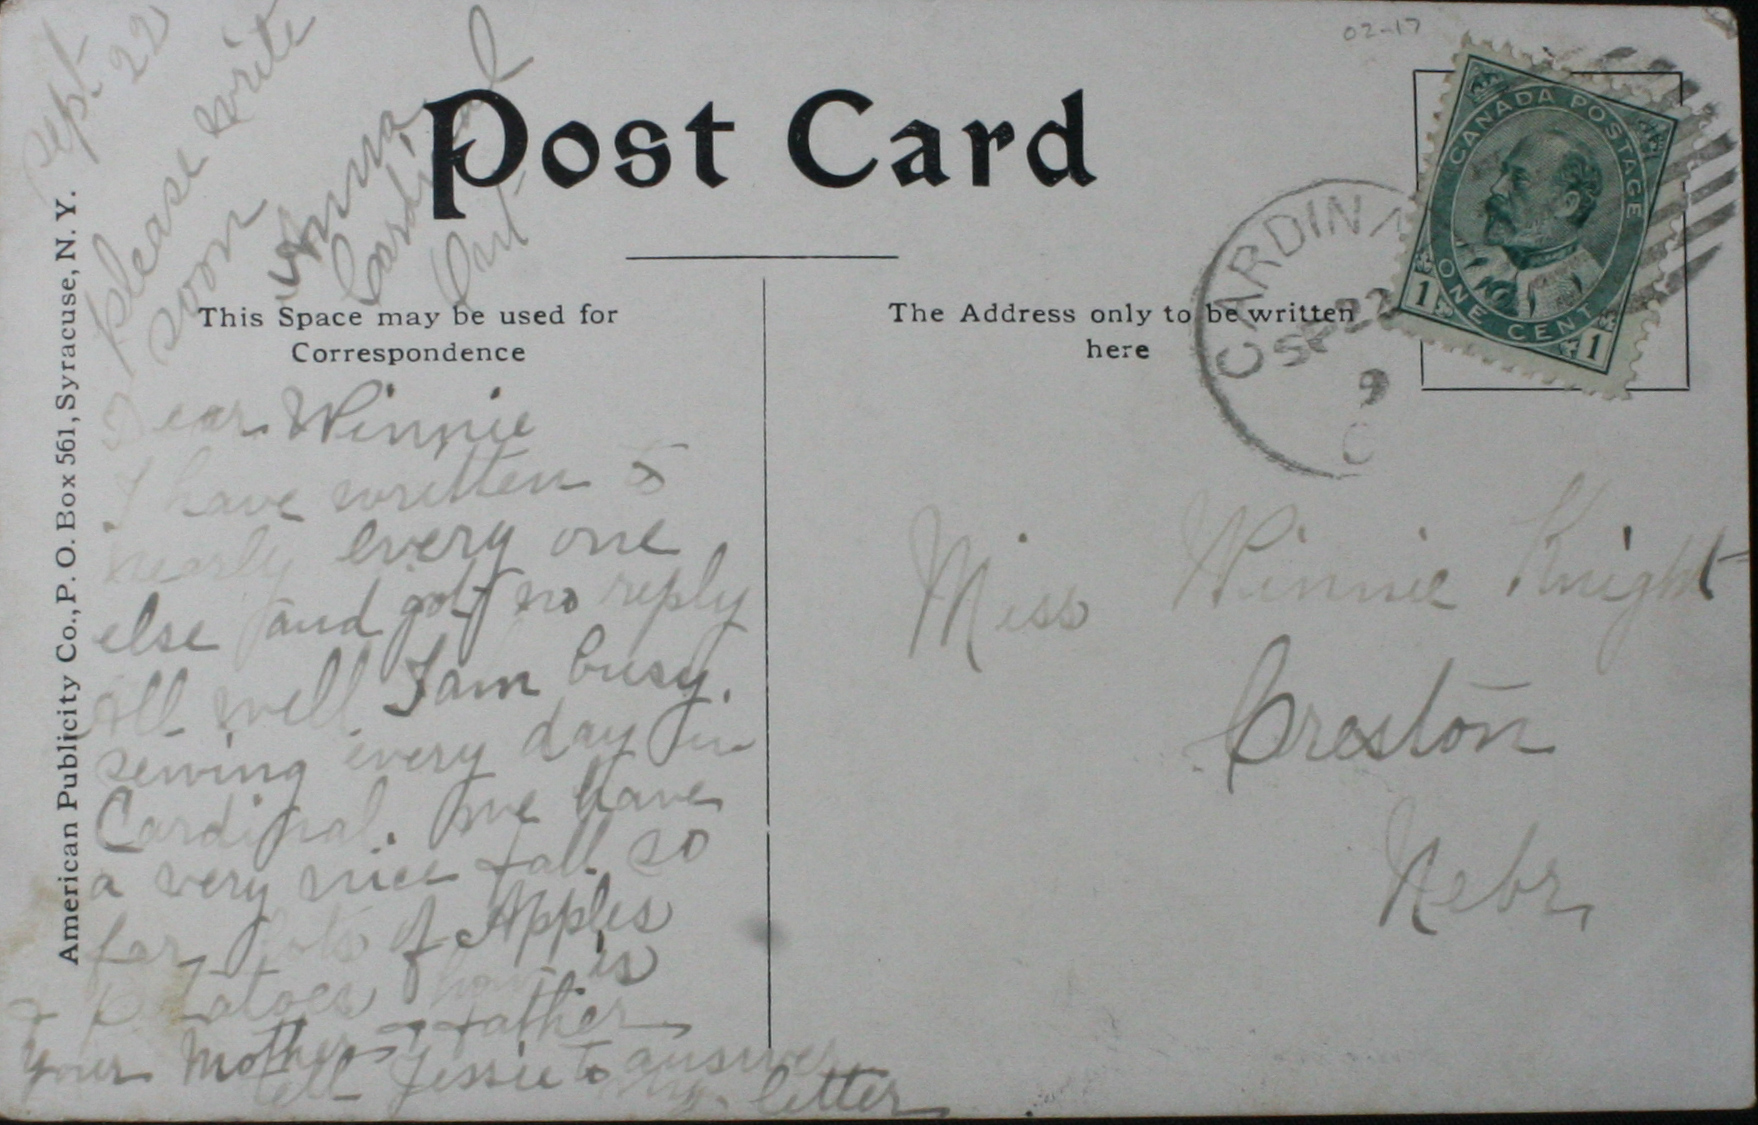 02-17
Post Card
CANADA POSTAGE
ONE CENT
1 1
CARDINA
SP 22
9
This Space may be used for
Correspondence
The Address only to be written
here
American Publicity Co., P. O. Box 561, Syracuse, N. Y.
Sept. 22
please write
soon
Anna
Cardinal
Ont
Dear Winnie
I have written to
nearly every one
else and got no reply
All well I am busy.
sewing every day in
Cardinal. we have
a very nice fall so
far lots of Apples
& Potatoes how is
your Mother & father
tell Jessie to answer
my letter
Miss Winnie Knight
Creston
Nebr